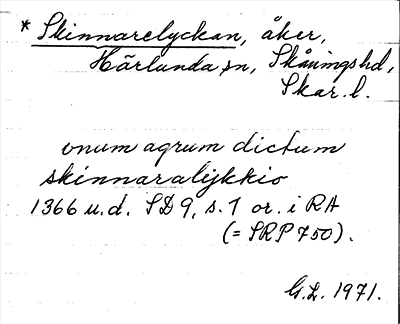 * Skinnarelyckan, åker,
Härlunda sn, Skånings hd,
Skar. l.
unum agrum dictum
skinnaralykkio
1366 u.d. SD 9, s. 1 or. i RA
(= SRP 750).
G.L. 1971.